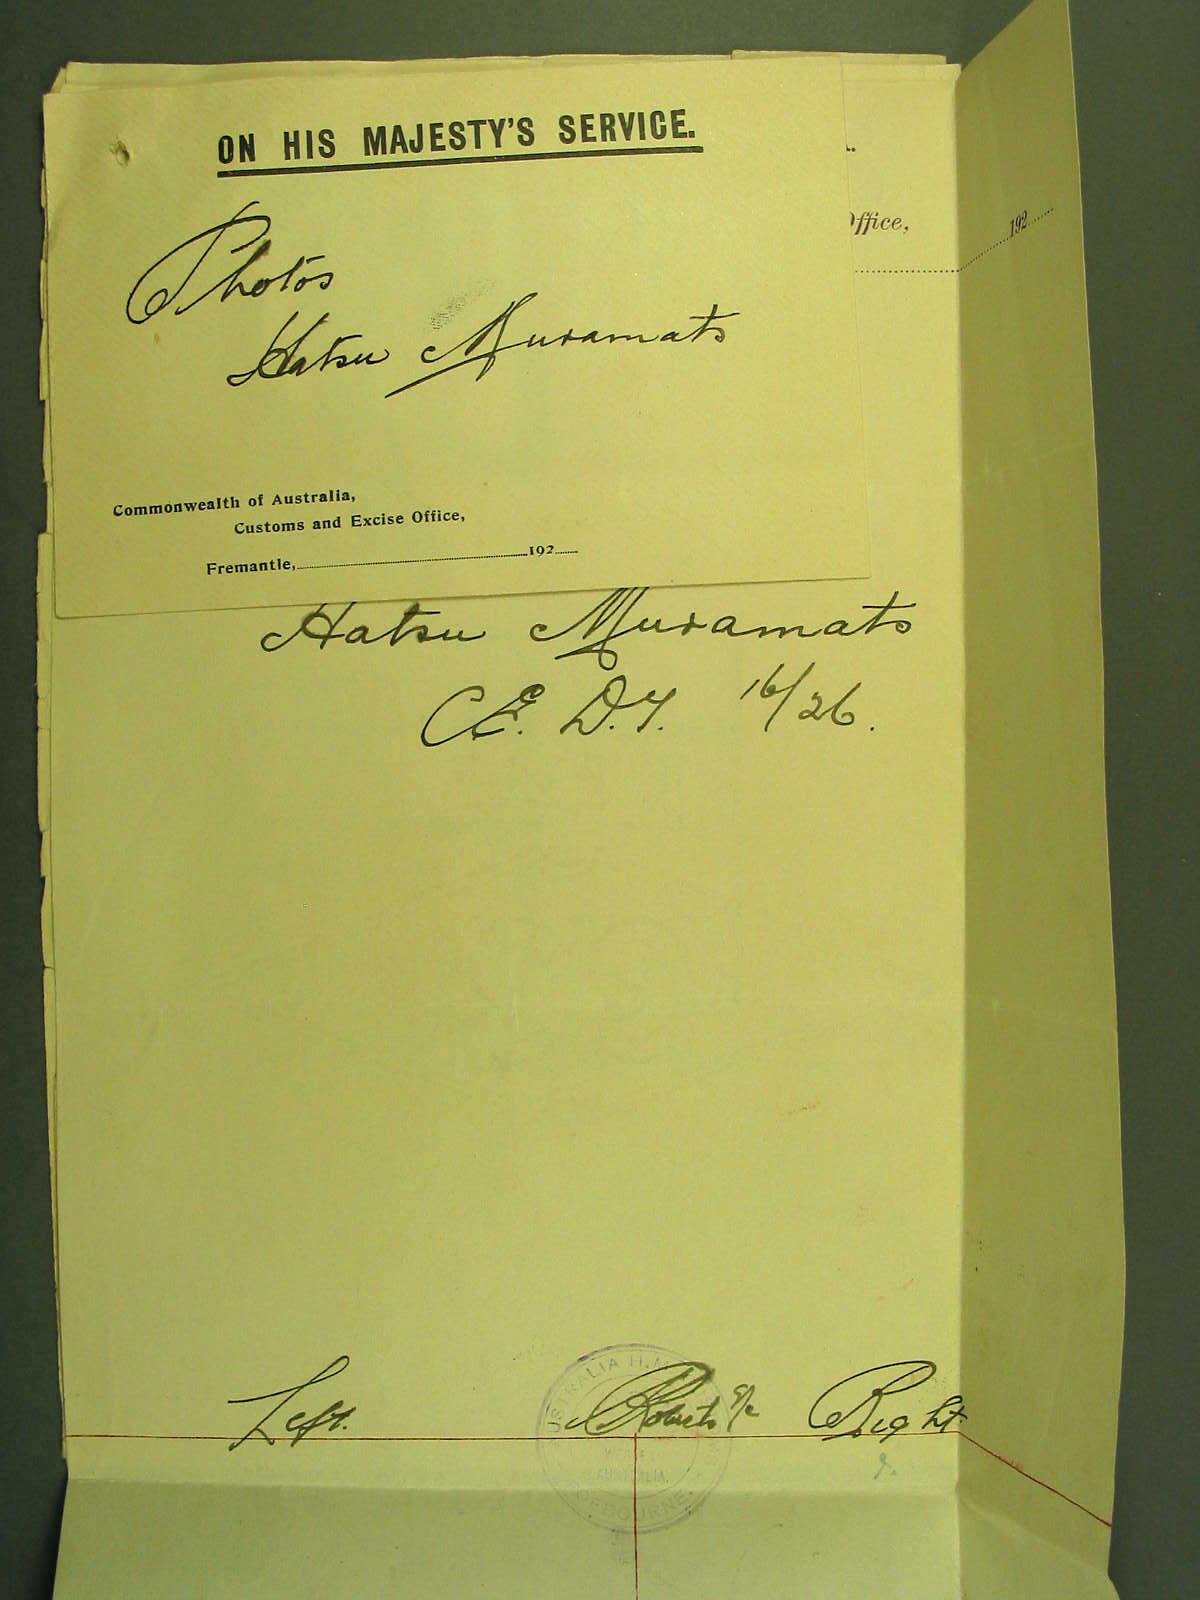 ON HIS MAJESTY'S SERVICE.
Photos
Hatsu Muramats
Commonwealth of Australia,
Customs and Excise Office,
Fremantle,..........192......
Office,
..........192......
Hatsu Muramats
C.E. D.T. 16/26.
Left. Roberts Right